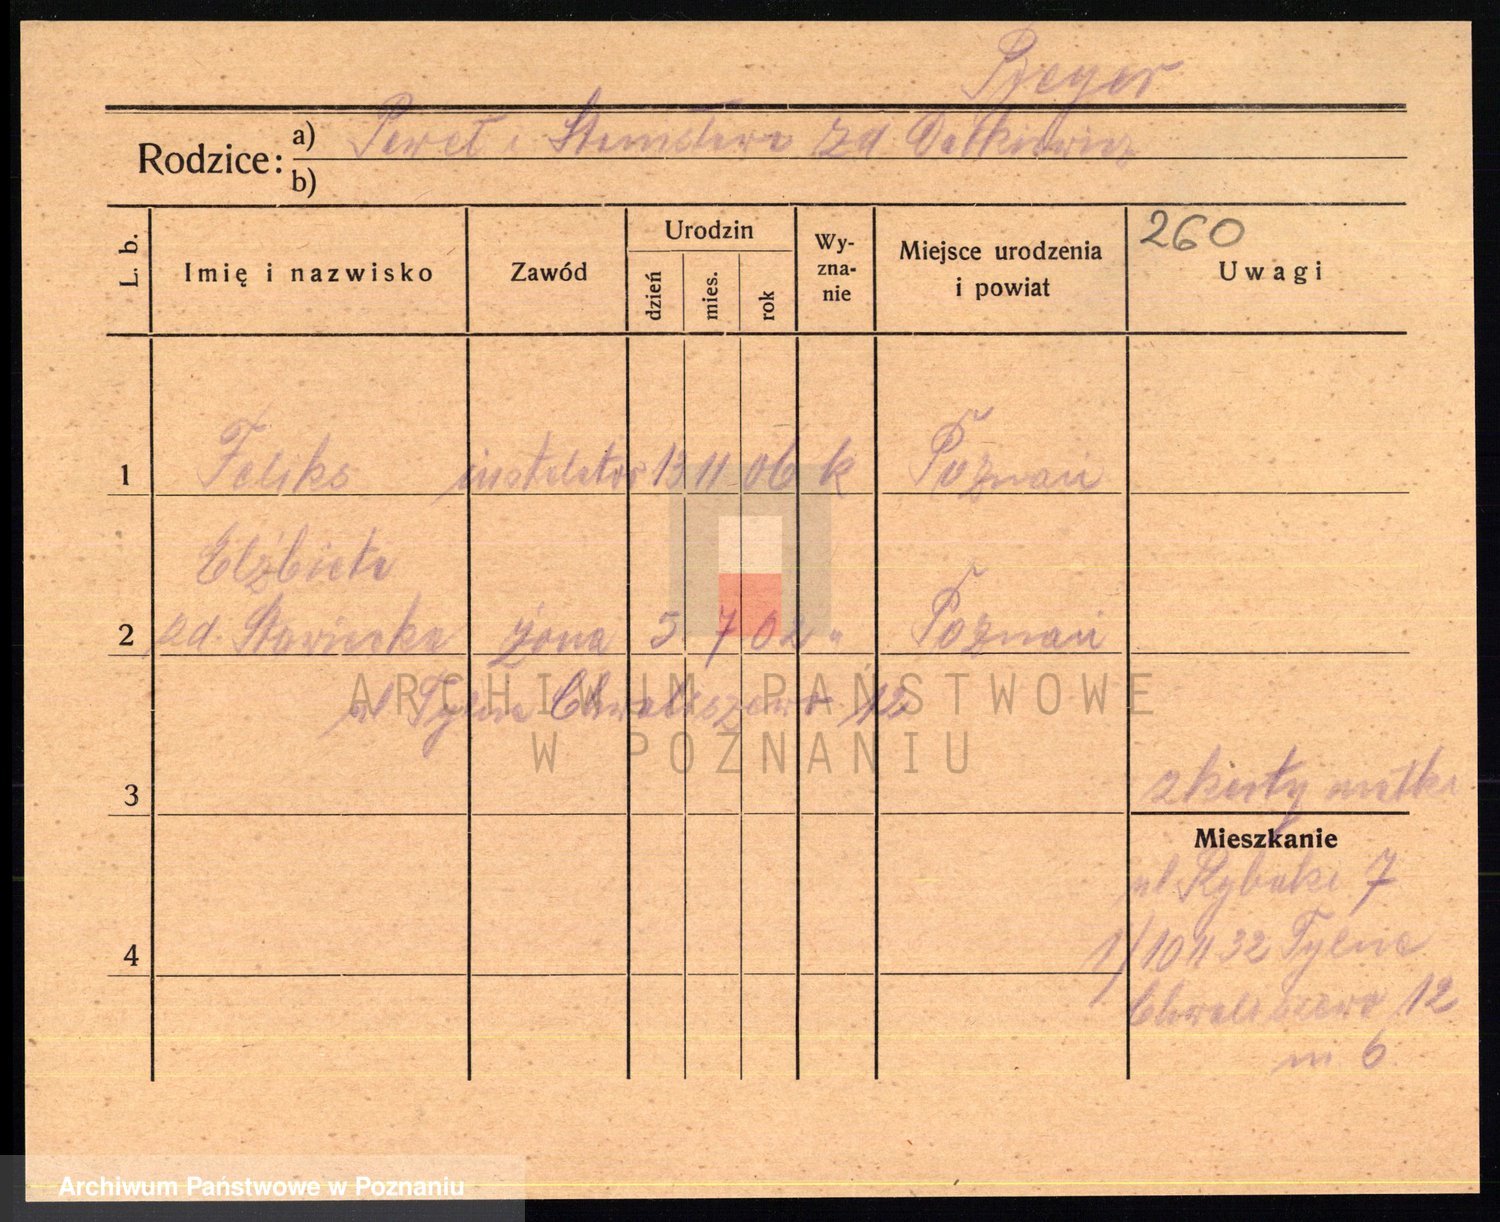 Rodzice: a) Paweł i Stanisława zd.
b)
L. b.
Imię i nazwisko
Zawód
Urodzin
dzień
mies.
rok
Wy-
zna-
nie
Miejsce urodzenia
i powiat
260
Uwagi
1 Feliks instalator 13 11 06 k Poznań
Elżbieta
2 zd. Stawicka żona 5 7 02 " Poznań
ul Tylne Chwaliszewo 12
3 z karty matki
Mieszkanie
ul. Rybaki 7
4 1/10 II 32 Tylne
Chwaliszewo 12
m. 6
ARCHIWUM PAŃSTWOWE
W POZNANIU
Archiwum Państwowe w Poznaniu